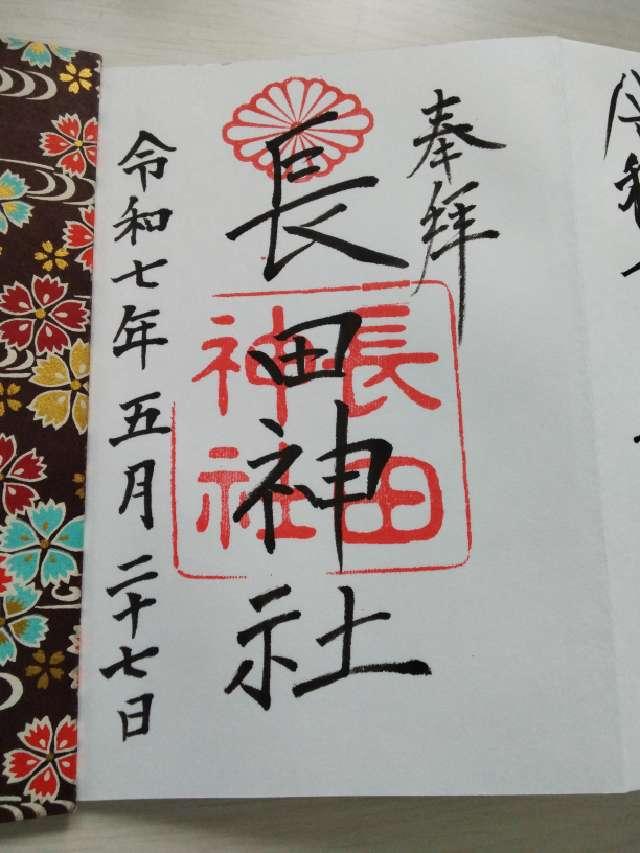 奉拝
長田神社
長田
神社
令和七年五月二十七日